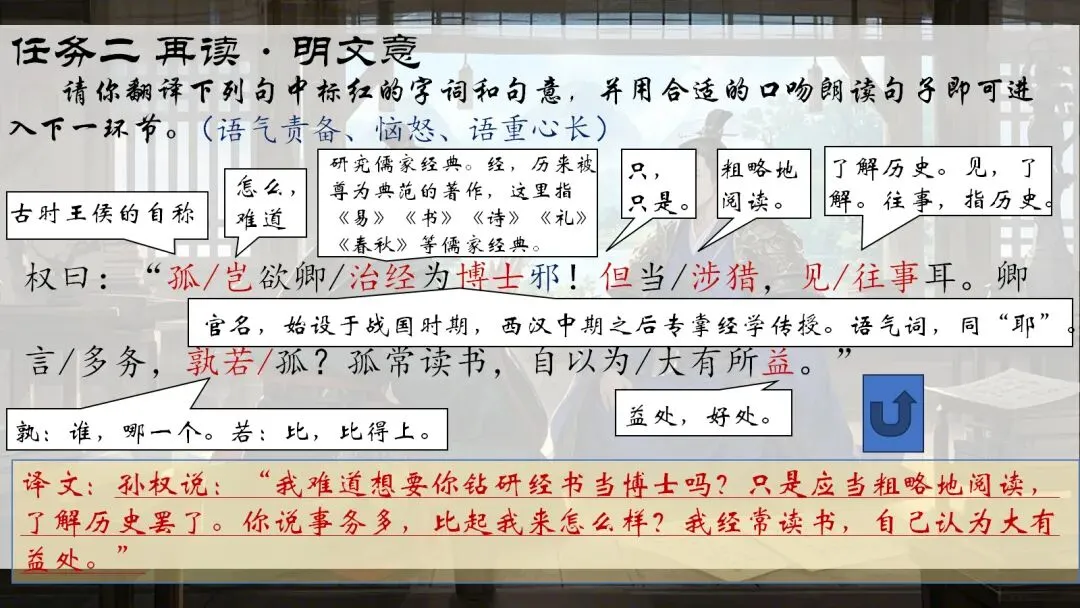 任务二 再读·明文意
请你翻译下列句中标红的字词和句意，并用合适的口吻朗读句子即可进
入下一环节。（语气责备、恼怒、语重心长）
古时王侯的自称
怎么，
难道
研究儒家经典。经，历来被
尊为典范的著作，这里指
《易》《书》《诗》《礼》
《春秋》等儒家经典。
只，
只是。
粗略地
阅读。
了解历史。见，了
解。往事，指历史。
权曰：“孤/岂欲卿/治经为博士邪！但当/涉猎，见/往事耳。卿
官名，始设于战国时期，西汉中期之后专掌经学传授。语气词，同“耶”。
言/多务，孰若/孤？孤常读书，自以为/大有所益。”
孰：谁，哪一个。若：比，比得上。
益处，好处。
译文：孙权说：“我难道想要你钻研经书当博士吗？只是应当粗略地阅读，
了解历史罢了。你说事务多，比起我来怎么样？我经常读书，自己认为大有
益处。”